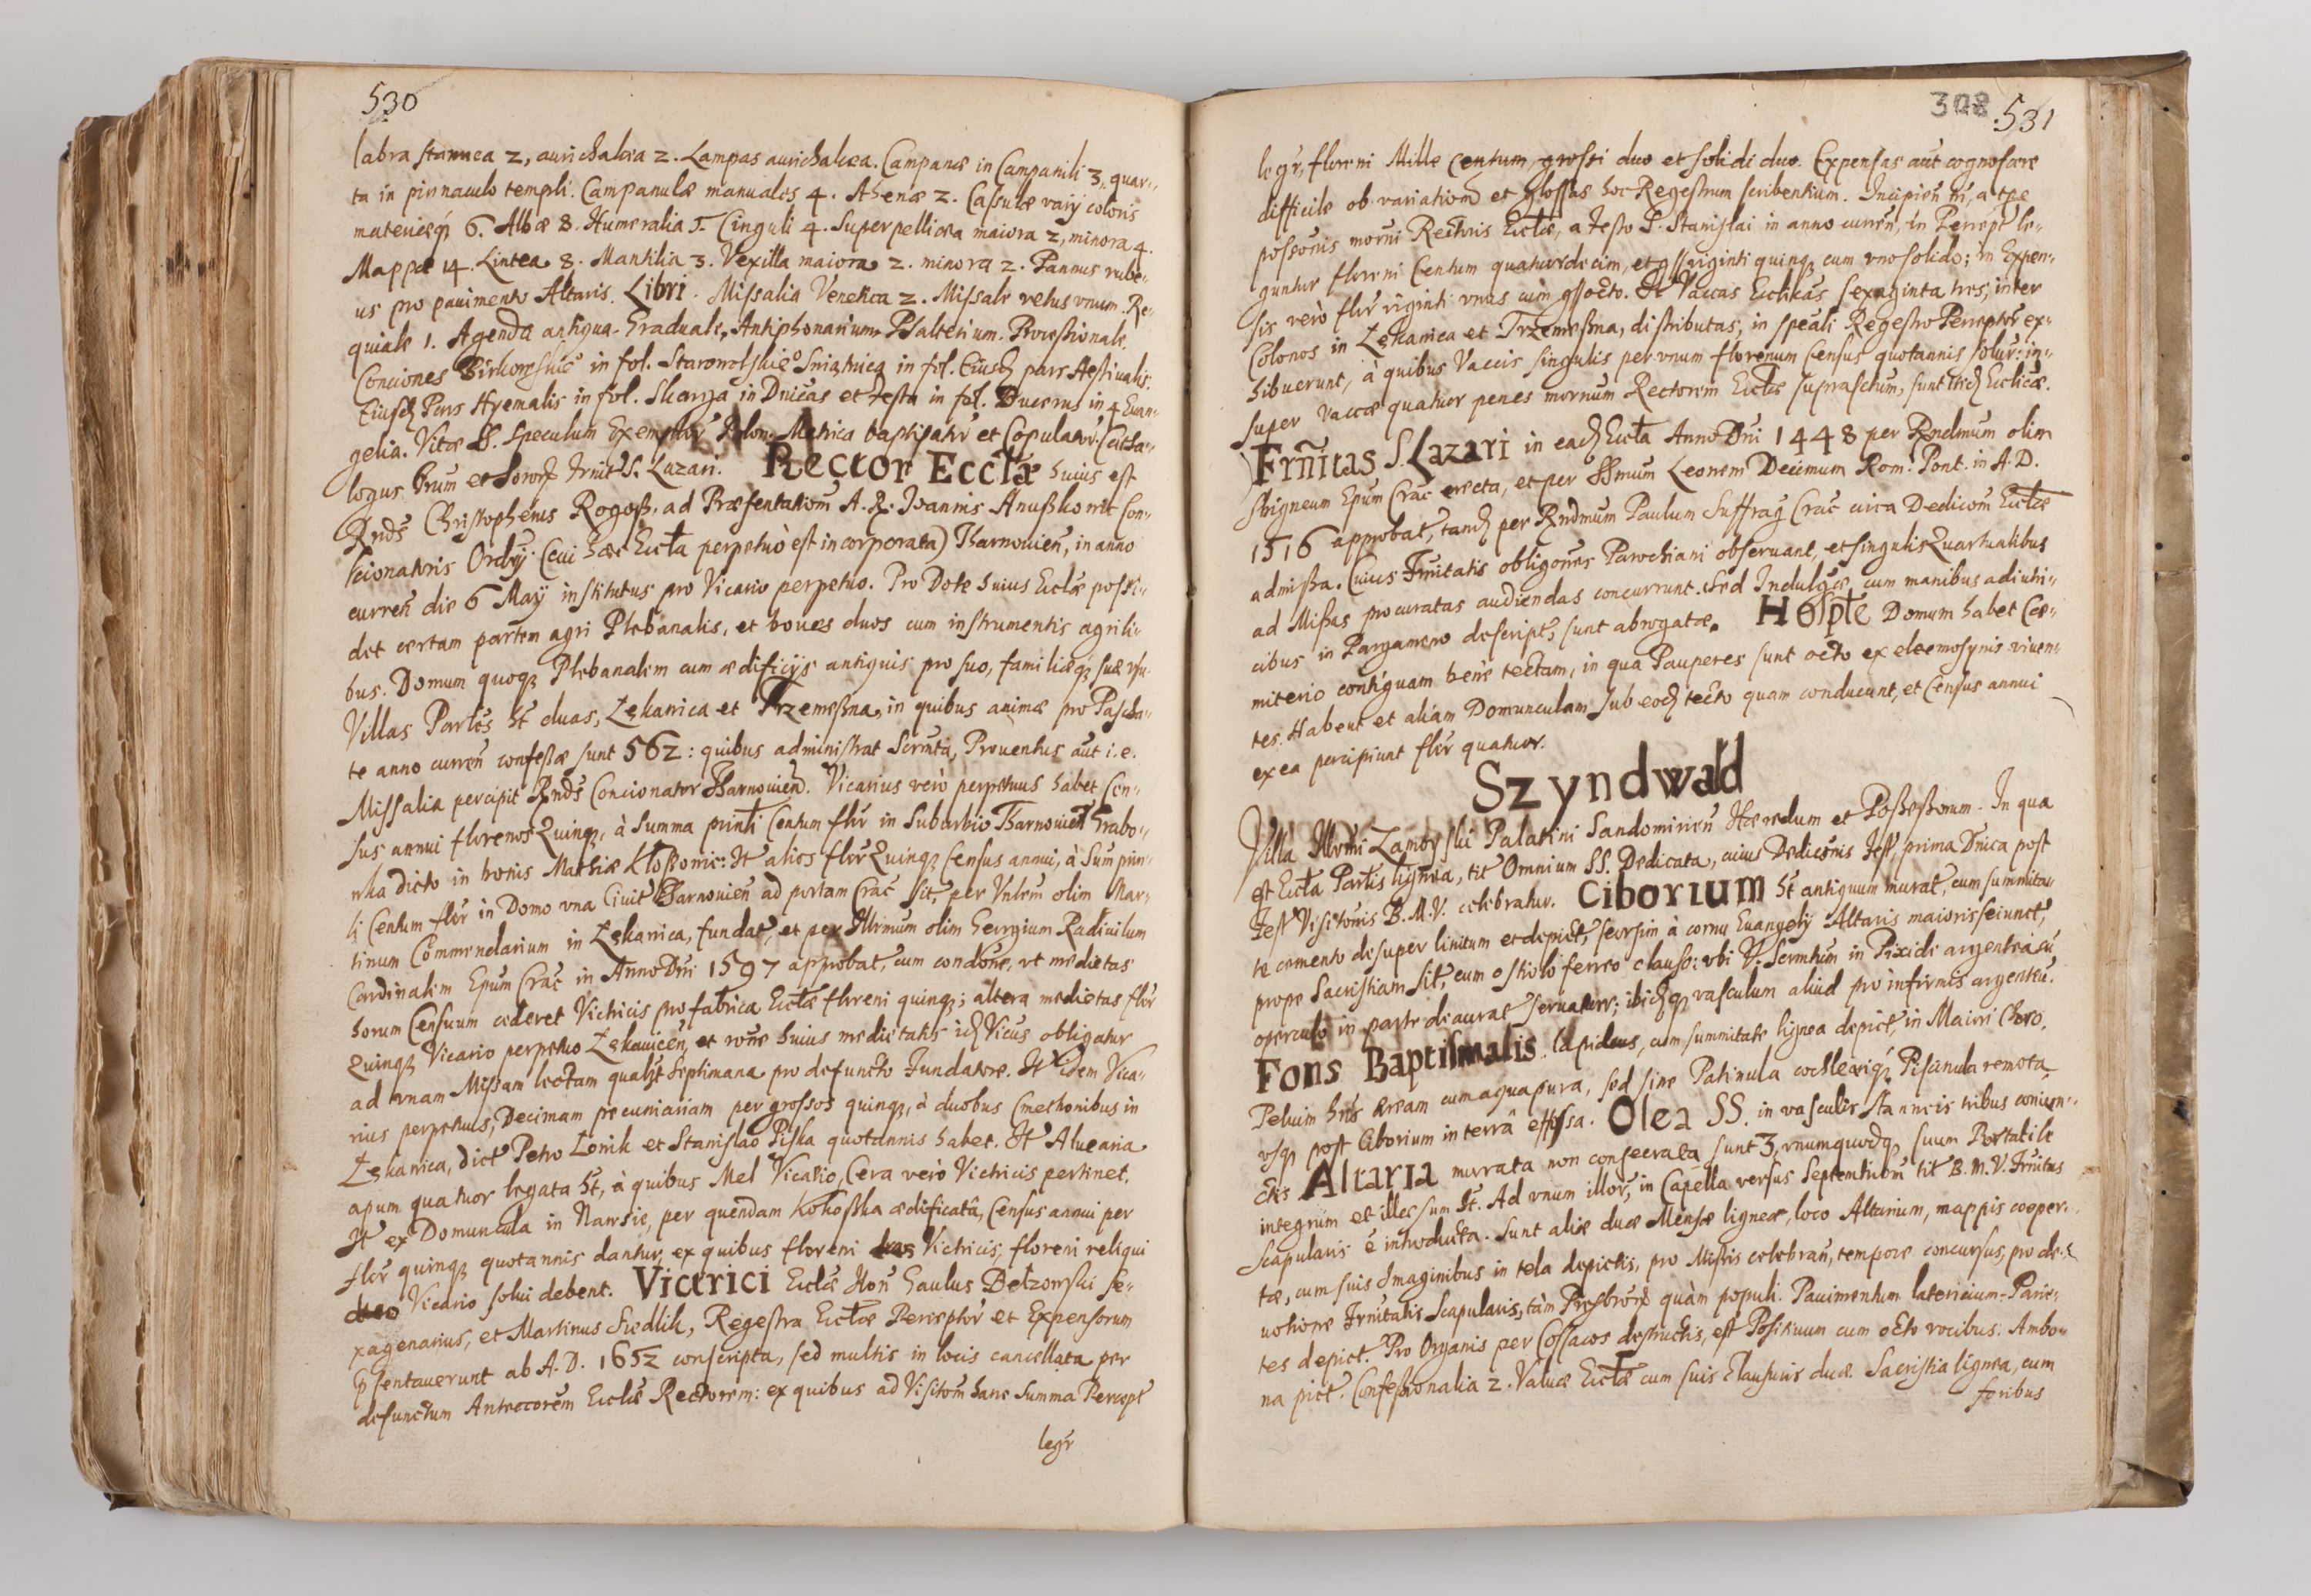 530
labra stannea 2, aurichalcea 2. Lampas aurichalcea. Campanæ in Campanili 3, quar-
ta in pinnaculo templi. Campanulæ manuales 4. Athenæ 2. Casulæ varij coloris
materieq3 6. Albæ 8. Humeralia 5. Cinguli 4. Superpellicea maiora 2, minora 4.
Mappæ 14. Lintea 8. Mantilia 3. Vexilla maiora 2. minora 2. Pannus rube-
us pro pauimento Altaris. Libri. Missalia Veneta 2. Missale vetus vnum. Re-
quiale 1. Agenda antiqua. Graduale, Antiphonarium. Psalterium. Processionale.
Conciones in fol. in fol. Eiusd pars Æstiualis.
Eiusd Pars Hyemalis in fol. Skarga in Dnicas et Festa in fol. Bucerus in 4 Euan-
gelia. Vitæ S. Speculum Exemplor Polon. Metrica baptisator et Copulator. Catha-
logus Frum et Soror Frnit S. Lazari. Rector Ecclæ huius est
Rnds Christophorus Rogosz, ad Præsentationem A. R. Ioannis Anuszkowic Con-
cionatoris Ordrij (cui hæc Eccla perpetuò est incorporata) Tharnouien, in anno
curren die 6 Maij institutus pro Vicario perpetuo. Pro Dote huius Ecclæ possi-
det certam partem agri Plebanalis, et boues duos cum instrumentis agrili-
bus. Domum quoq3 Plebanalem cum ædificijs antiquis pro suo, familiæq3 suæ vsu
Villas Partes ht duas, Lękawica et Trzemeszna, in quibus animæ pro Pascha-
te anno curren confessæ sunt 562: quibus administrat Scrmta, Prouentus aut i.e.
Missalia percipit Rnds Concionator Tharnouien. Vicarius verò perpetuus habet Cen-
sus annui florenos Quinq3, à summa prinli Centum flor in Suburbio Tharnouien Grabo-
wka dicto in bonis Mathiæ Kloszowic: It alios flor Quinq3 Census annui, à Sum prin-
li Centum flor in Domo vna Ciuit Tharnouien ad portam Crac sit, per Vnlem olim Mar-
tinum Commendarium in Lękawica, fundat, et per Illrmum olim Georgium Radiuilum
Cardinalem Epum Crac in Anno Dni 1597 approbat, cum condone, vt medietas
horum Censuum cederet Victricis pro fabrica Ecclæ floreni quinq3; altera medietas flor
Quinq3 Vicario perpetuo Lękauicen, et rone huius medietatis id Vicus obligatur
ad vnam Missam lectam qualibt Septimana pro defuncto Fundatore. It idem Vica-
rius perpetuus, Decimam pecuniariam per grossos quinq3, à duobus Cmethonibus in
Lękawica, dict Petro Lenik et Stanislao Piska quotannis habet. It Aluearia
apum quatuor legata ht, à quibus Mel Vicario, Cera verò Victricis pertinet.
It ex Domuncula in per quendam Kokoszka ædificatâ, Census annui per
flor quinq3 quotannis dantur, ex quibus floreni tres Victricis, floreni reliqui
duo Vicario solui debent. Victrici Ecclæ Hon Gaulus Belzowski se-
xagenarius, et Martinus Siedlik, Regestra Ecclæ Perceptor et Expensorum
psentauerunt ab A. D. 1652 conscripta, sed multis in locis cancellata per
defunctum Antecorem Ecclæ Rectorem: ex quibus ad Visitom hanc Summa Percept
legr
308 531
legr, floreni Mille Centum, grossi duo et solidi duo. Expensas aut cognoscere
difficile ob variationem et glossas hoc Regestrum scribentium. Incipien tn, a tpe
possonis morni Rectoris Ecclæ, a festo S. Stanislai in anno curren, in Percept le-
guntur floreni Centum quatuordecim, et gss viginti quinq3 cum vno solido; in Expen-
sis verò flor viginti vnus cum gss octo. It Vaccas Ecclicas sexaginta tres, inter
Colonos in Lękawica et Trzemeszna, distributas, in speali Regestro Perceptor ex-
hibuerunt, à quibus Vaccis singulis per vnum florenum Census quotannis soluit: in-
super vaccæ quatuor penes mornum Rectorem Ecclæ suprasctum, sunt itid Ecclicæ.
Frñitas S. Lazari in ead Eccla Anno Dni 1448 per Rndmum olim
Sbigneum Epum Crac erecta, et per SSmum Leonem Decimum Rom. Pont. in A. D.
1516 approbat, tand per Rndmum Paulum Suffrag Crac circa Dedicom Ecclæ
admissa. Cuius Frnitatis obligones Parochiani obseruant, et singulis Quartualibus
ad Missas procuratas audiendas concurrunt. Sed Indulgæ cum manibus adiutri-
cibus in Pargameno descript, sunt abrogatæ. Hosple Domum habet Cœ-
miterio contiguam bene tectam, in qua Pauperes sunt octo ex eleemosynis viuen-
tes. Habent et aliam Domunculam sub eod tecto quam conducunt, et Census annui
ex ea percipiunt flor quatuor.
Szyndwald
Villa Illrmi Zamoyski Palatini Sandomirien Hæredum et Possessorum. In qua
est Eccla Parlis lignea, tit Omnium SS. Dedicata, cuius Dedicionis fest, prima Dnica post
Fest Visitonis B. M. V. celebratur. Ciborium ht antiquum murat, cum summita-
te cemento desuper linitum et depict, seorsim à cornu Euangelij Altaris maioris seiunct,
prope Sacristiam sit, cum ostiolo ferreo clauso: vbi V. Scrmtum in Pixide argentea cu
operculo in parte deaurat seruatur; ibidq3 vasculum aliud pro infirmis argenteu.
Fons Baptismalis lapideus, cum summitate lignea depict, in Maiori Choro,
Peluim hns æream cum aqua pura, sed sine Patinula cochleariq3. Piscinula remota,
vsq3 post Ciborium in terrâ effossa. Olea SS. in vasculis stanneis tribus coniun-
ctis Altaria murata non consecrata sunt 3, vnumquodq3 suum Portatile
integrum et illæsum ht. Ad vnum illor, in Capella versus Septemtriom tit B. M. V. Frnitas
Scapularis e introducta. Sunt aliæ duæ Mensæ ligneæ, loco Altarium, mappis cooper-
tæ, cum suis Imaginibus in tela depictis, pro Missis celebran, tempore concursus, pro de-
uotione Frnitatis Scapularis, tàm Presbror quàm populi. Pauimentum latericium. Parie-
tes depict. Pro Organis per Cossacos destructis, est Positiuum cum octo vocibus. Ambo-
na pict. Confessionalia 2. Valuæ Ecclæ cum suis Clausuris duæ. Sacristia lignea, cum
foribus